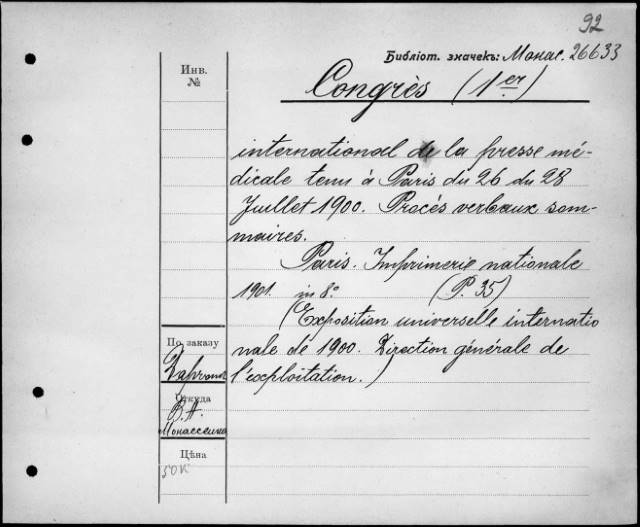 92
Библiот. значекъ: Монас. 26633
Инв.
№
Congrès (1er)
international de la presse mé-
dicale tenu à Paris du 26 du 28
Juillet 1900. Procès verbaux som-
maires.
Paris. Imprimerie nationale
1901. in 8º. (P. 35)
(Exposition universelle internatio
nale de 1900. Direction générale de
l'exploitation.)
По заказу
Откуда
В.А.
Монассеина
Цѣна
50к